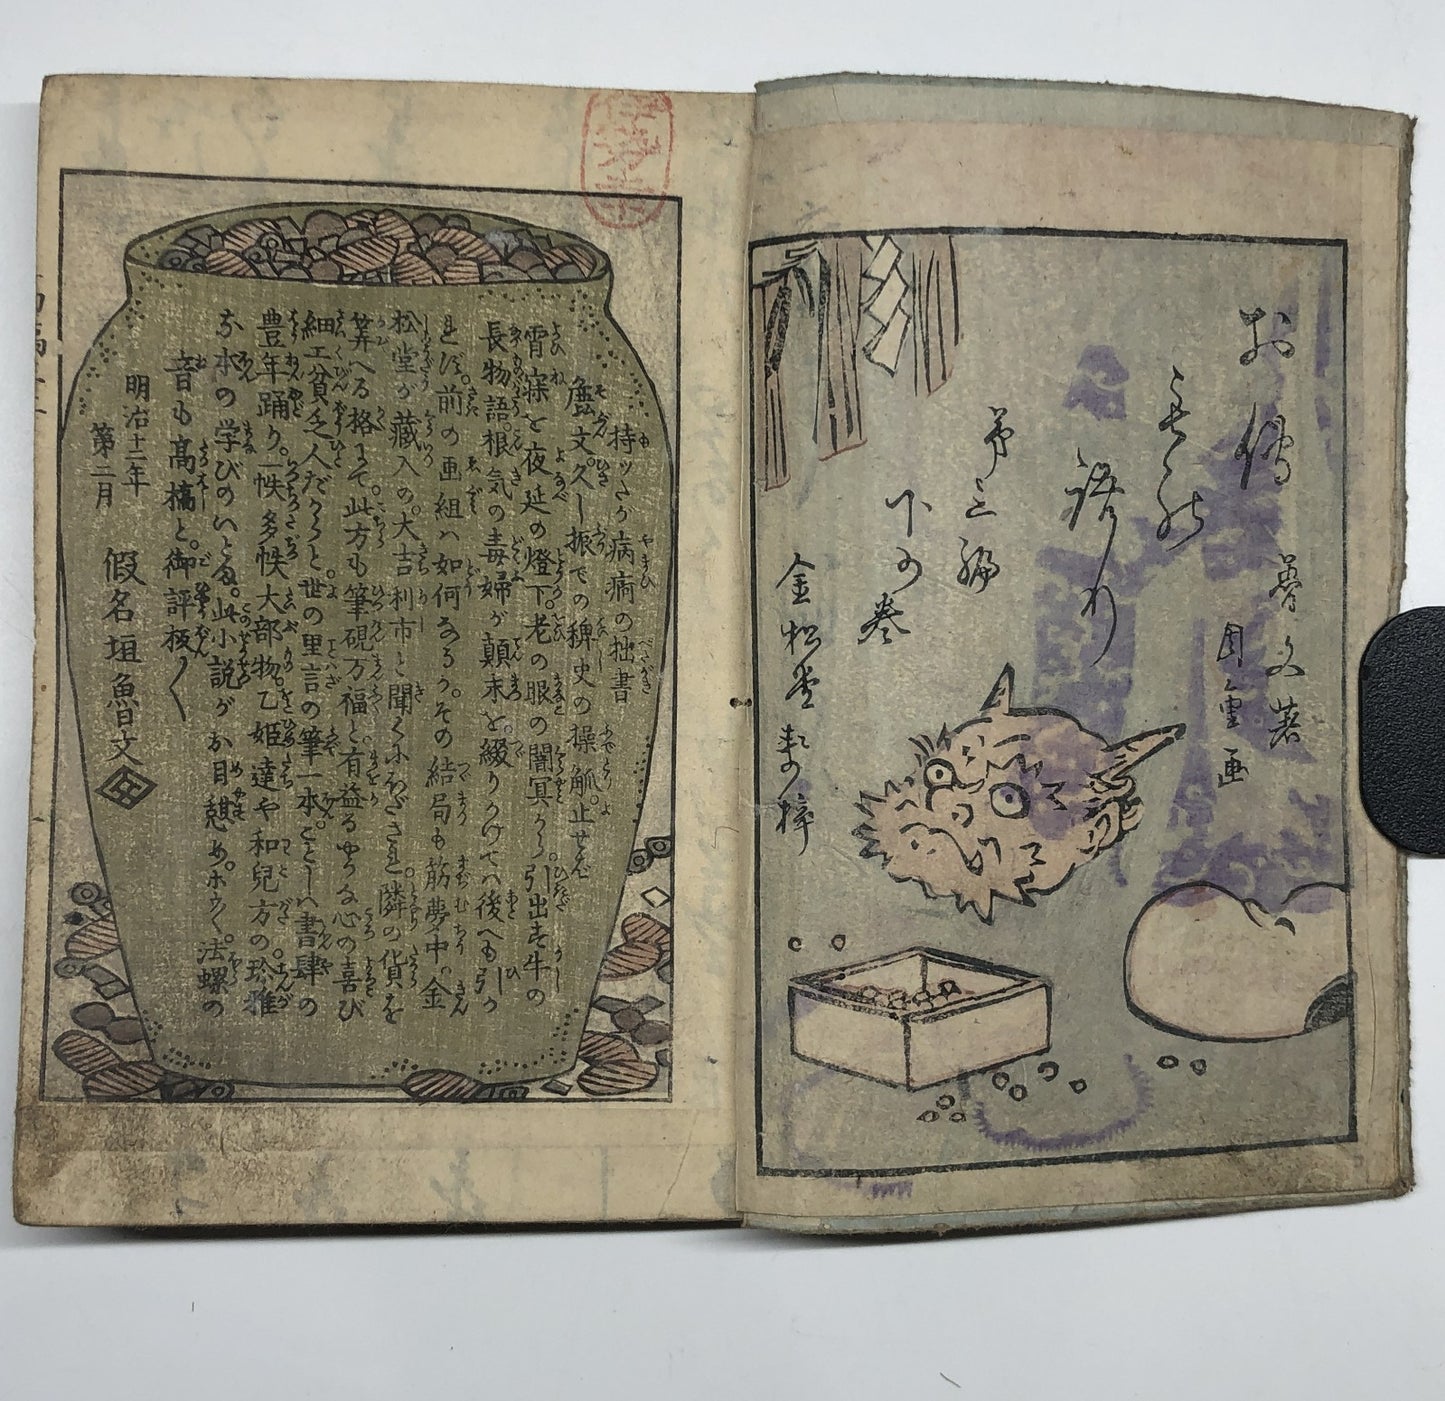 お傳
ものかたり
魯文著
国重画
第三編
下の巻
金松堂梓
持ツたが病痾の拙書
麁文。久し振での稗史の操觚。止せば
宵寐を夜延の燈下。老の眼の闇冥から。引出す牛の
長物語。根気の毒婦が顛末を。綴りかけてハ後へも引
れず。前の画組ハ如何なるか。その結局も筋夢中。金
松堂が藏入の。大吉利市と聞くにほだされ。隣の貨を
筭へる格にて。此方も筆硯万福と。有益るゆかな心の喜び
細工貧乏人だからと。世の里言の筆一本。こと〲ハ書肆の
豊年踊り。一帙多帙大部物。乙姫達や和兒方の。珍雅
な本の学びのいとま。此小説がお目憩め。ホウ〱。法螺の
音も高摘と。御評板〱
明治十二年
第二月
假名垣魯文